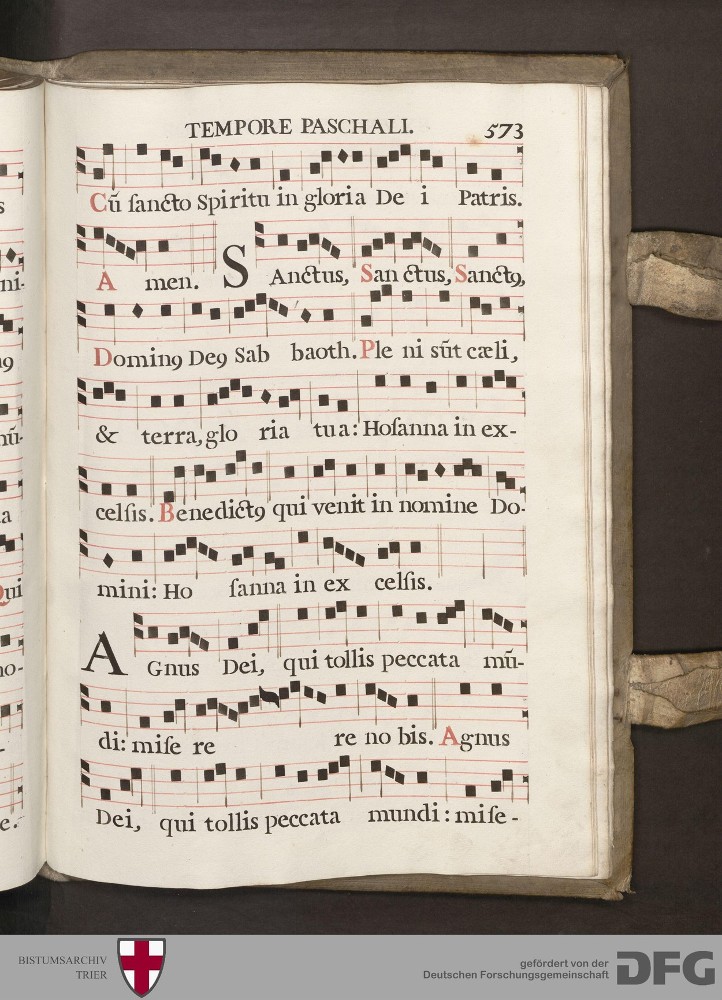 TEMPORE PASCHALI. 573
Cū ſancto Spiritu in gloria De i Patris.
A men. SAnctus, San ctus, Sanctꝯ,
Dominꝯ Deꝯ Sab baoth. Ple ni sūt cæli,
& terra, glo ria tua: Hoſanna in ex-
celſis. Benedictꝯ qui venit in nomine Do-
mini: Ho ſanna in ex celſis.
AGnus Dei, qui tollis peccata mū-
di: miſe re re no bis. Agnus
Dei, qui tollis peccata mundi: miſe-
BISTUMSARCHIV
TRIER
gefördert von der
Deutschen Forschungsgemeinschaft
DFG